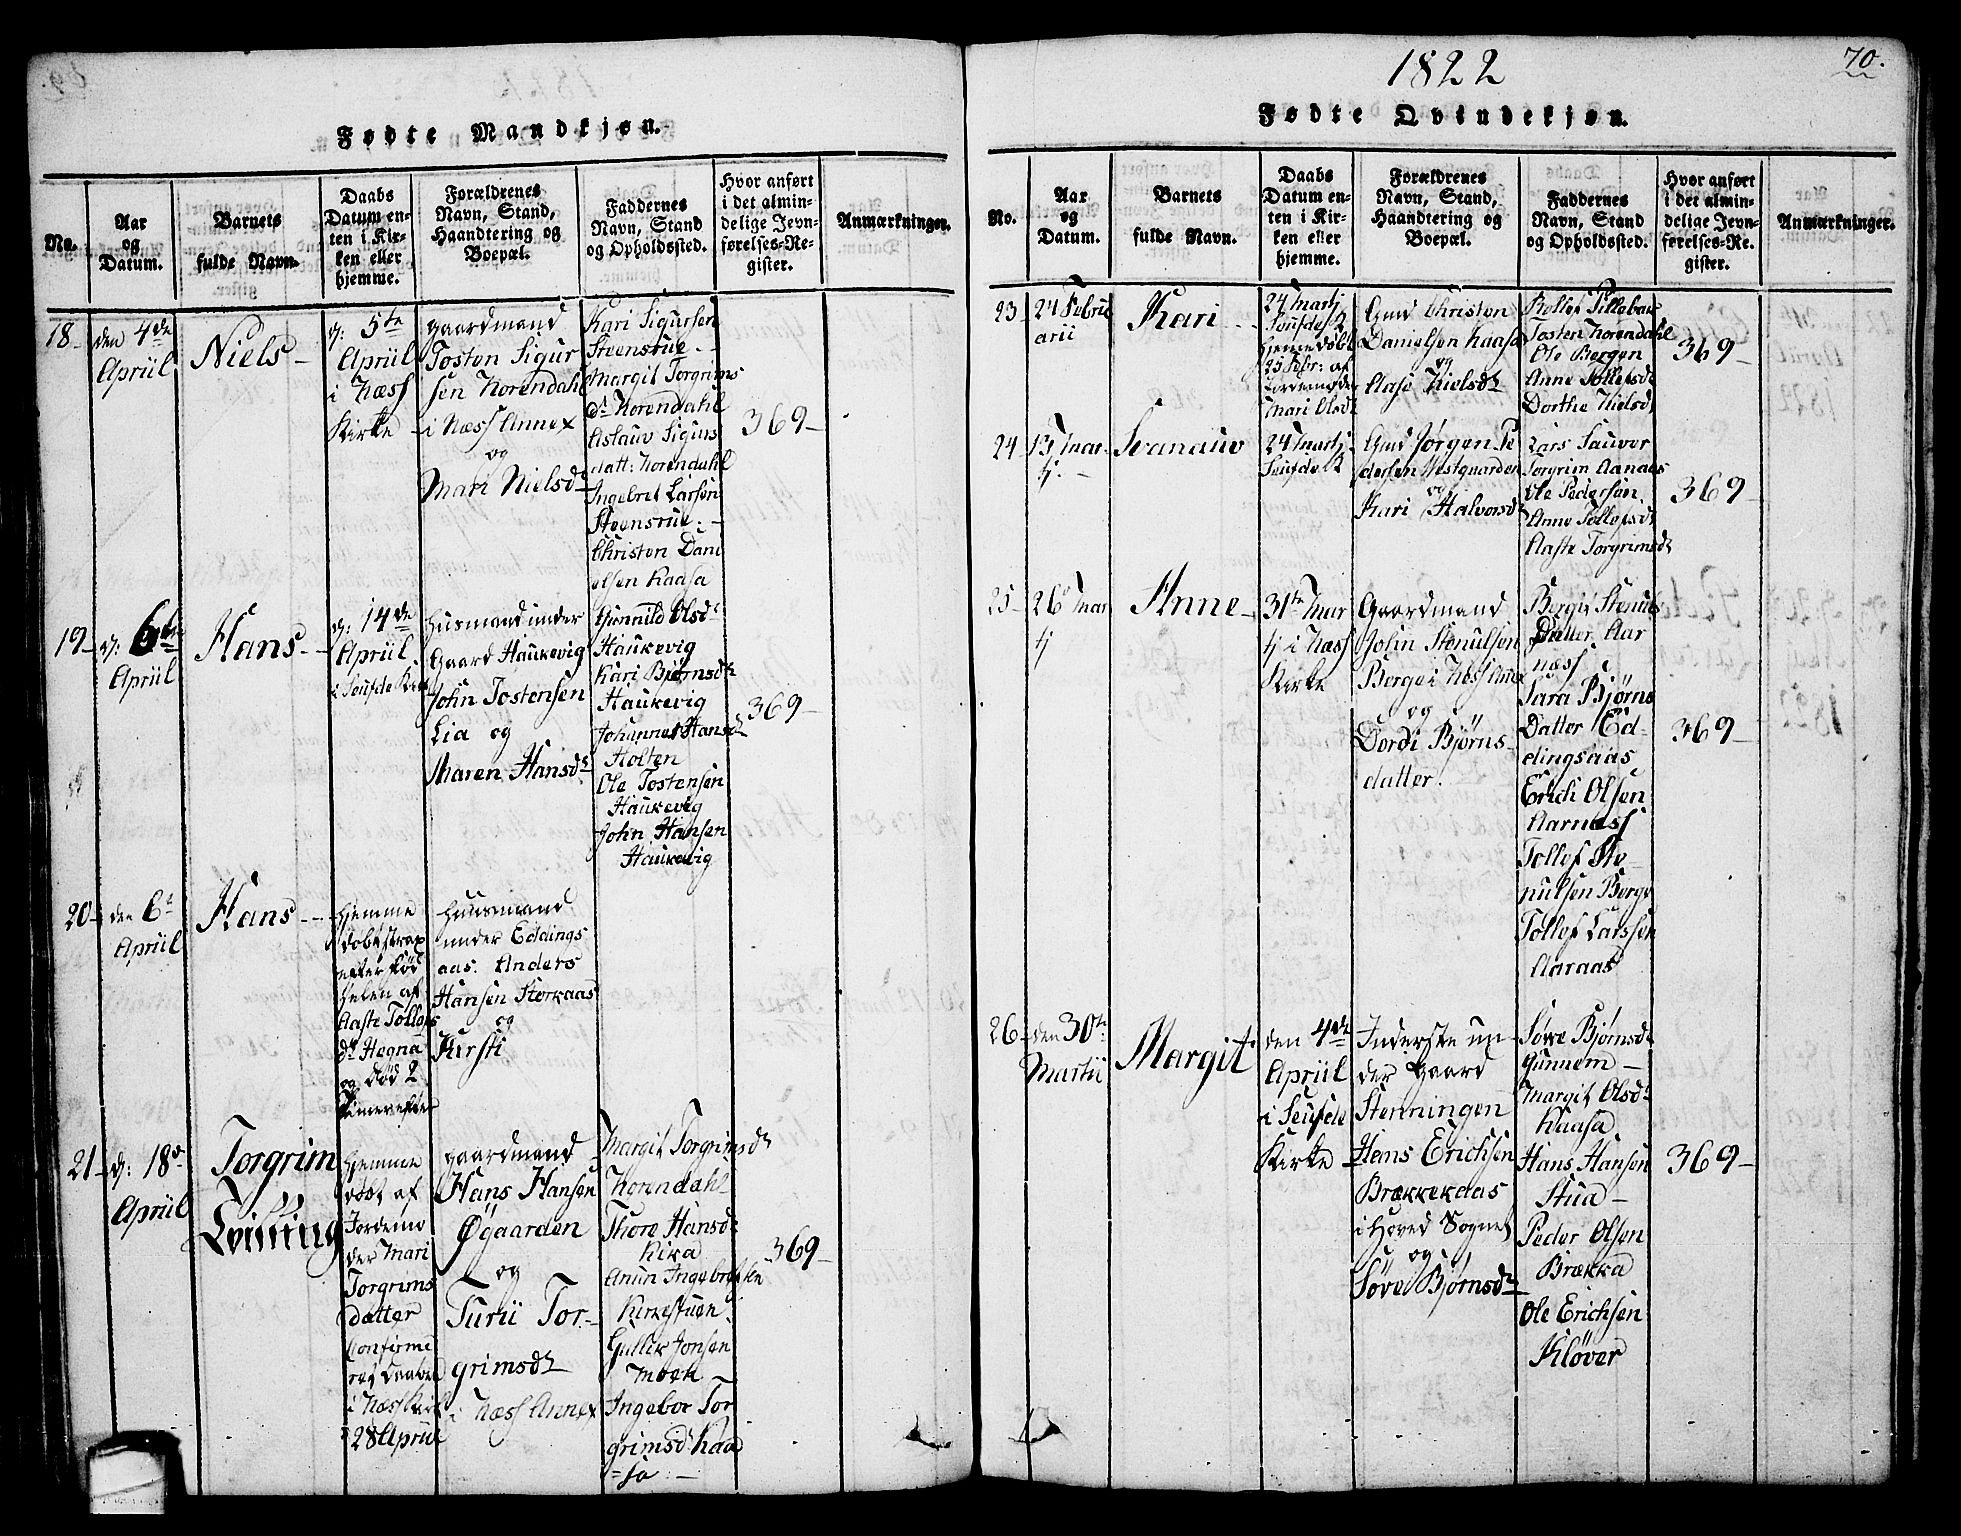 1822
70.
Fødte Mandkjøn.
No.
Aar
og
Datum.
Barnets
fulde Navn.
Daabs
Datum en-
ten i Kir-
ken eller
hjemme.
Forældrenes
Navn, Stand,
Haandtering og
Boepæl.
Faddernes
Navn, Stand
og Opholdssted.
Hvor anført
i det almin-
delige Jevn-
førelses-Re-
gister.
Anmærkninger.
18-
den 4de
Apriil
Niels-
d: 5te
Apriil
i Næss
Kirke
gaardmand
Tosten Sigur
sen Norendahl
i Næss Annex
og
Mari Nielsdr
Kari Sigursen
Steensrue-
Margit Torgrims
dr Norendahl
Aslauv Sigurs
datt: Norendahl
Ingebret Larsen
Steensrue.-
Christen Dani
elsen Kaasa
369-
19-
d: 6te
Apriil
Hans-
d: 14de
Apriil
i Seufde Kirke
Husmand under
Gaard Haukevig
John Tostensen
Lia og
Maren Hansdr
Gunnild Olsdr
Haukevig
Kari Bjørnsdr
Haukevig
Johannes Hansdr
Holten
Ole Tostensen
Haukevig
John Hansen
Haukevig
369-
20-
den 6te
Apriil
Hans--
hjemme
døbt strax
efter fød
selen af
Aaste Tollofs
dr Hegna
og død 2
timer efter
Huusmand
under Eddings
aas. Anders
Hansen Storkaas
og
Kirsti
21-
d: 18de
Apriil
Torgrim
hjemme
døbt af
Jordemo
der Mari
Torgrims
datter
Confirme
ret Daaben
i Næss Kirk
28 Apriil
gaardmand
Hans Hansen
Øgaarden
og
Turii Tor-
grimsdr
i Næss Annex
Margit Torgrimsdr
Norendahl
Thore Hansdr
Kika
Kirkestuen
Gullik Jonsen
Moen
Ingebor Tor
grimsdr Kaa
=sa-
369-
Fødte Qvindekjøn.
No.
Aar
og
Datum.
Barnets
fulde Navn.
Daabs
Datum en-
ten i Kir-
ken eller
hjemme.
Forældrenes
Navn, Stand,
Haandtering og
Boepæl.
Faddernes
Navn, Stand
og Opholdssted.
Hvor anført
i det almin-
delige Jevn-
førelses-Re-
gister.
Anmærkninger.
23-
24 Febru
arii
Kari
24 Martj
Seufde K
hjemme døbt
25 Febr: af
Jordemoder
Mari Olsdr
Gmd Christen
Danielsen Kaasa
og
Aase Nielsdr
Tosten Norendahl
Ole Bergen
Anne Tollefsdr
Dorthe Nielsdr
369-
24
13 Mar
tj.-
Svanauv
24 Martj
Seufde K
Gmd Jørgen Pe
dersen Vestgaarden
og
Kari Halvorsdr
Lars Sauver
Torgrim Aanaas
Ole Pedersen
Anne Tollefsdr
Aaste Torgrimsdr
369-
25-
26 Mar
tj
Anne-
31te Mar
tj i Næss
Kirke
Gaardmand
John Stenulsen
Berge i Næss Annex
og
Dordi Bjørns-
datter.
Bergit Stenuls
Datter Aar
næss
Sara Bjørns
Datter Ed-
dingsaas
Erich Olsen
Aarnæss
Tollef Ste-
nulsen Berge
Tollef Larssen
Aaraas
369-
26-
den 30te
Martii
Margit
den 4de
Apriil
i Seufde
Kirke-
Inderste un-
der Gaard
Stenningen
Hans Erichsen
Brækkekaas
i Hoved Sognet
og
Søve Bjørnsdr
Søve Bjørnsdr
Gunnem-
Margit Olsdr
Kaasa
Hans Hansen
Stua-
Peder Olsen
Brækka
Ole Erichsen
Kløver
369-